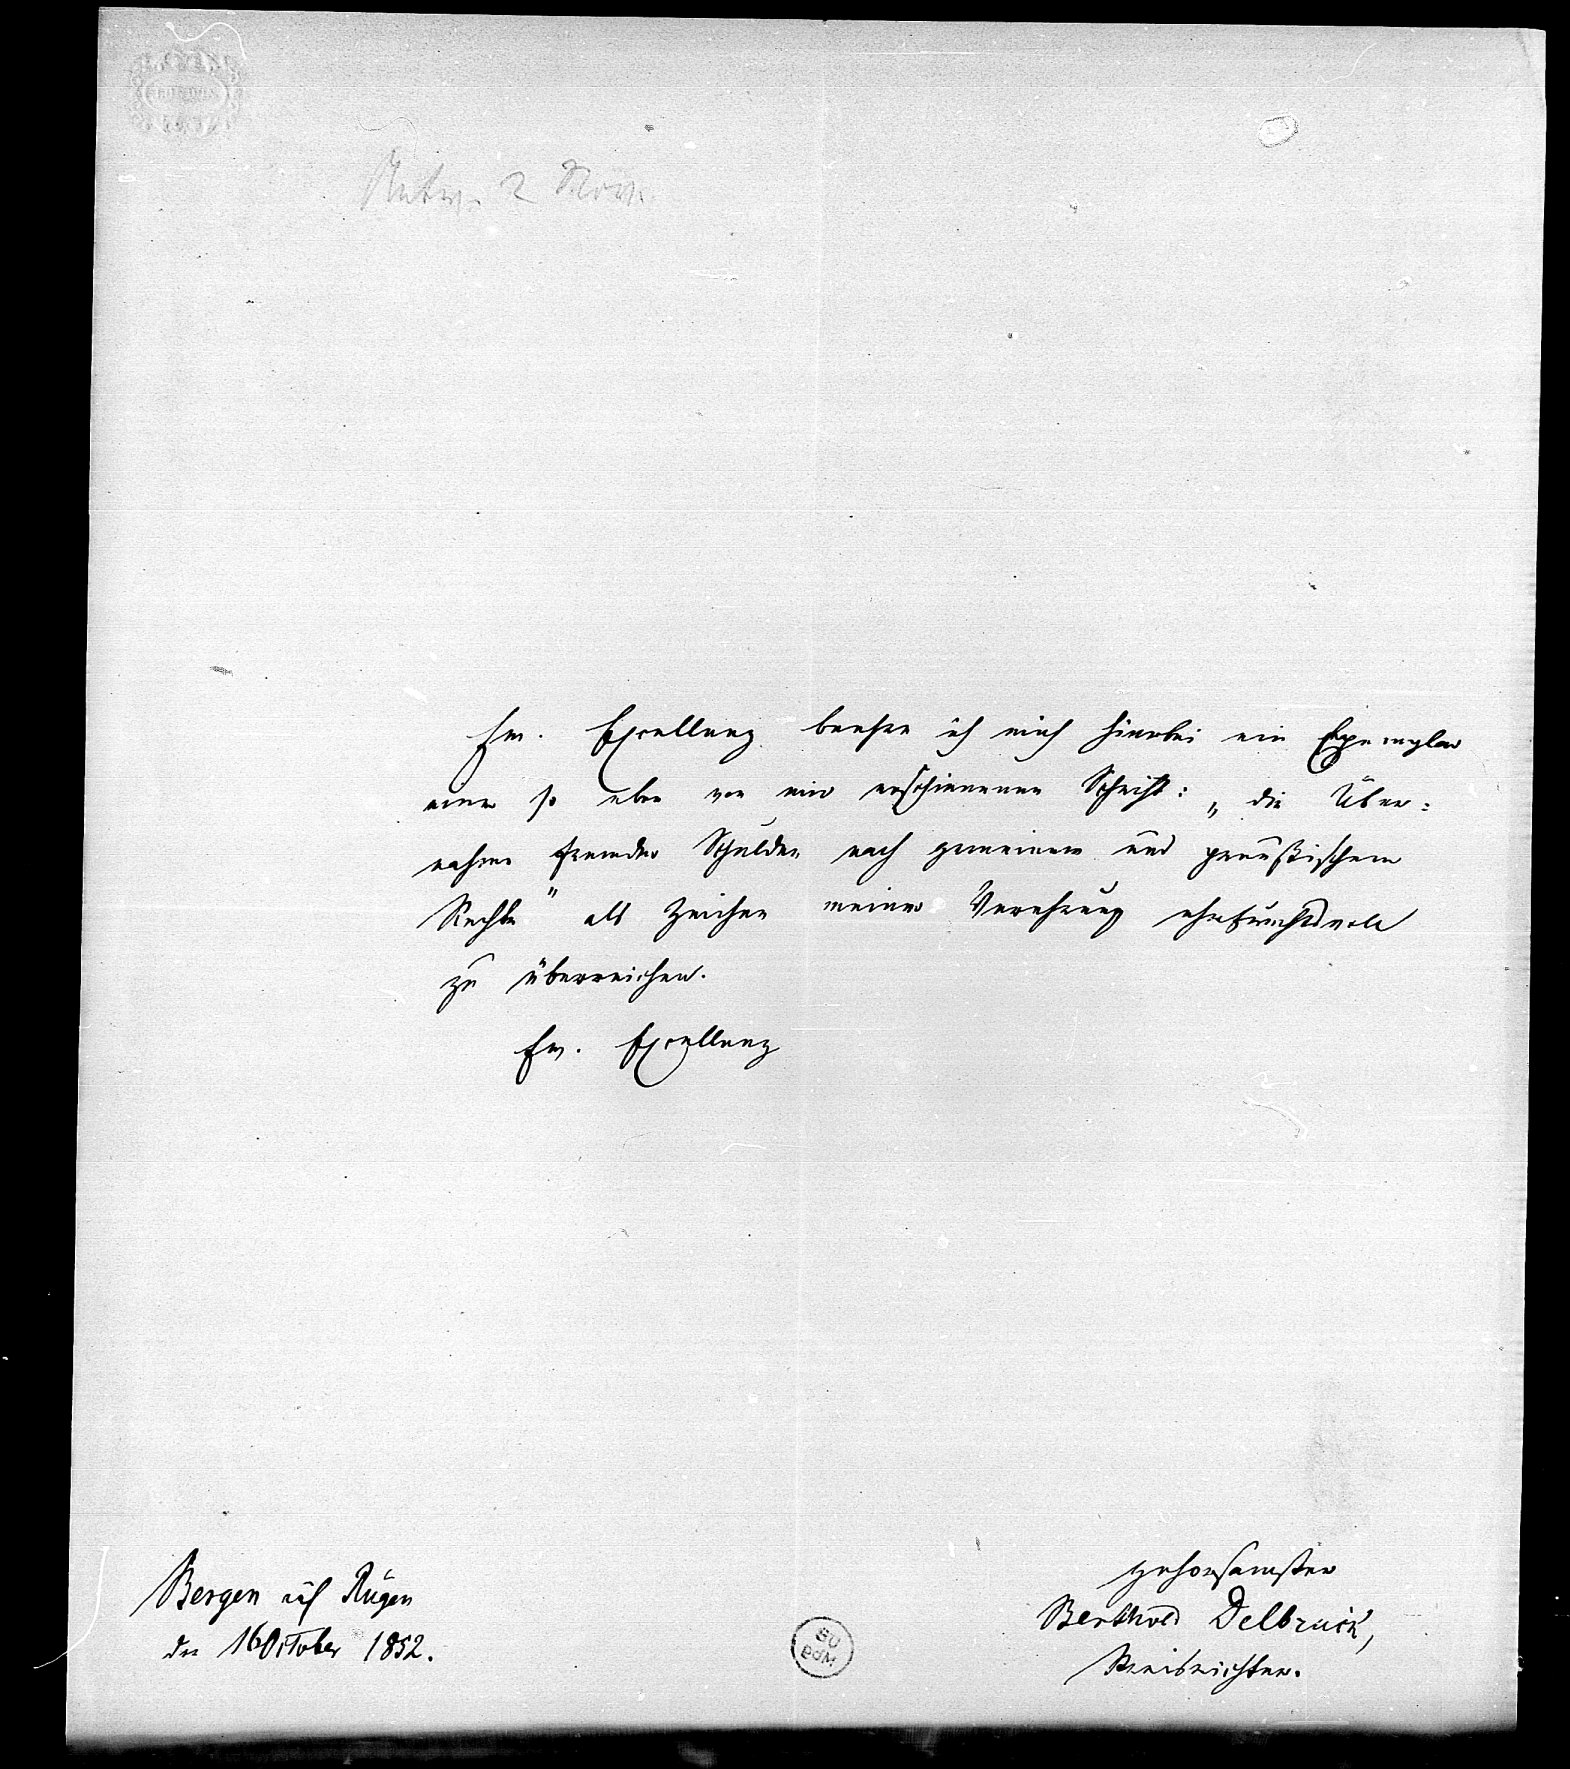 Antw. 2 Nov.
Ew. Excellenz beehre ich mich hierbei ein Exemplar
einer so eben von mir erschienenen Schrift: „die Über:
nahme fremder Schulden nach gemeinem und preußischem
Rechte" als Zeichen meiner Verehrung ehrfurchtsvoll
zu überreichen.
Ew. Excellenz
gehorsamster
Berthold Delbrück,
Kreisrichter.
Bergen auf Rügen
den 16 October 1852.